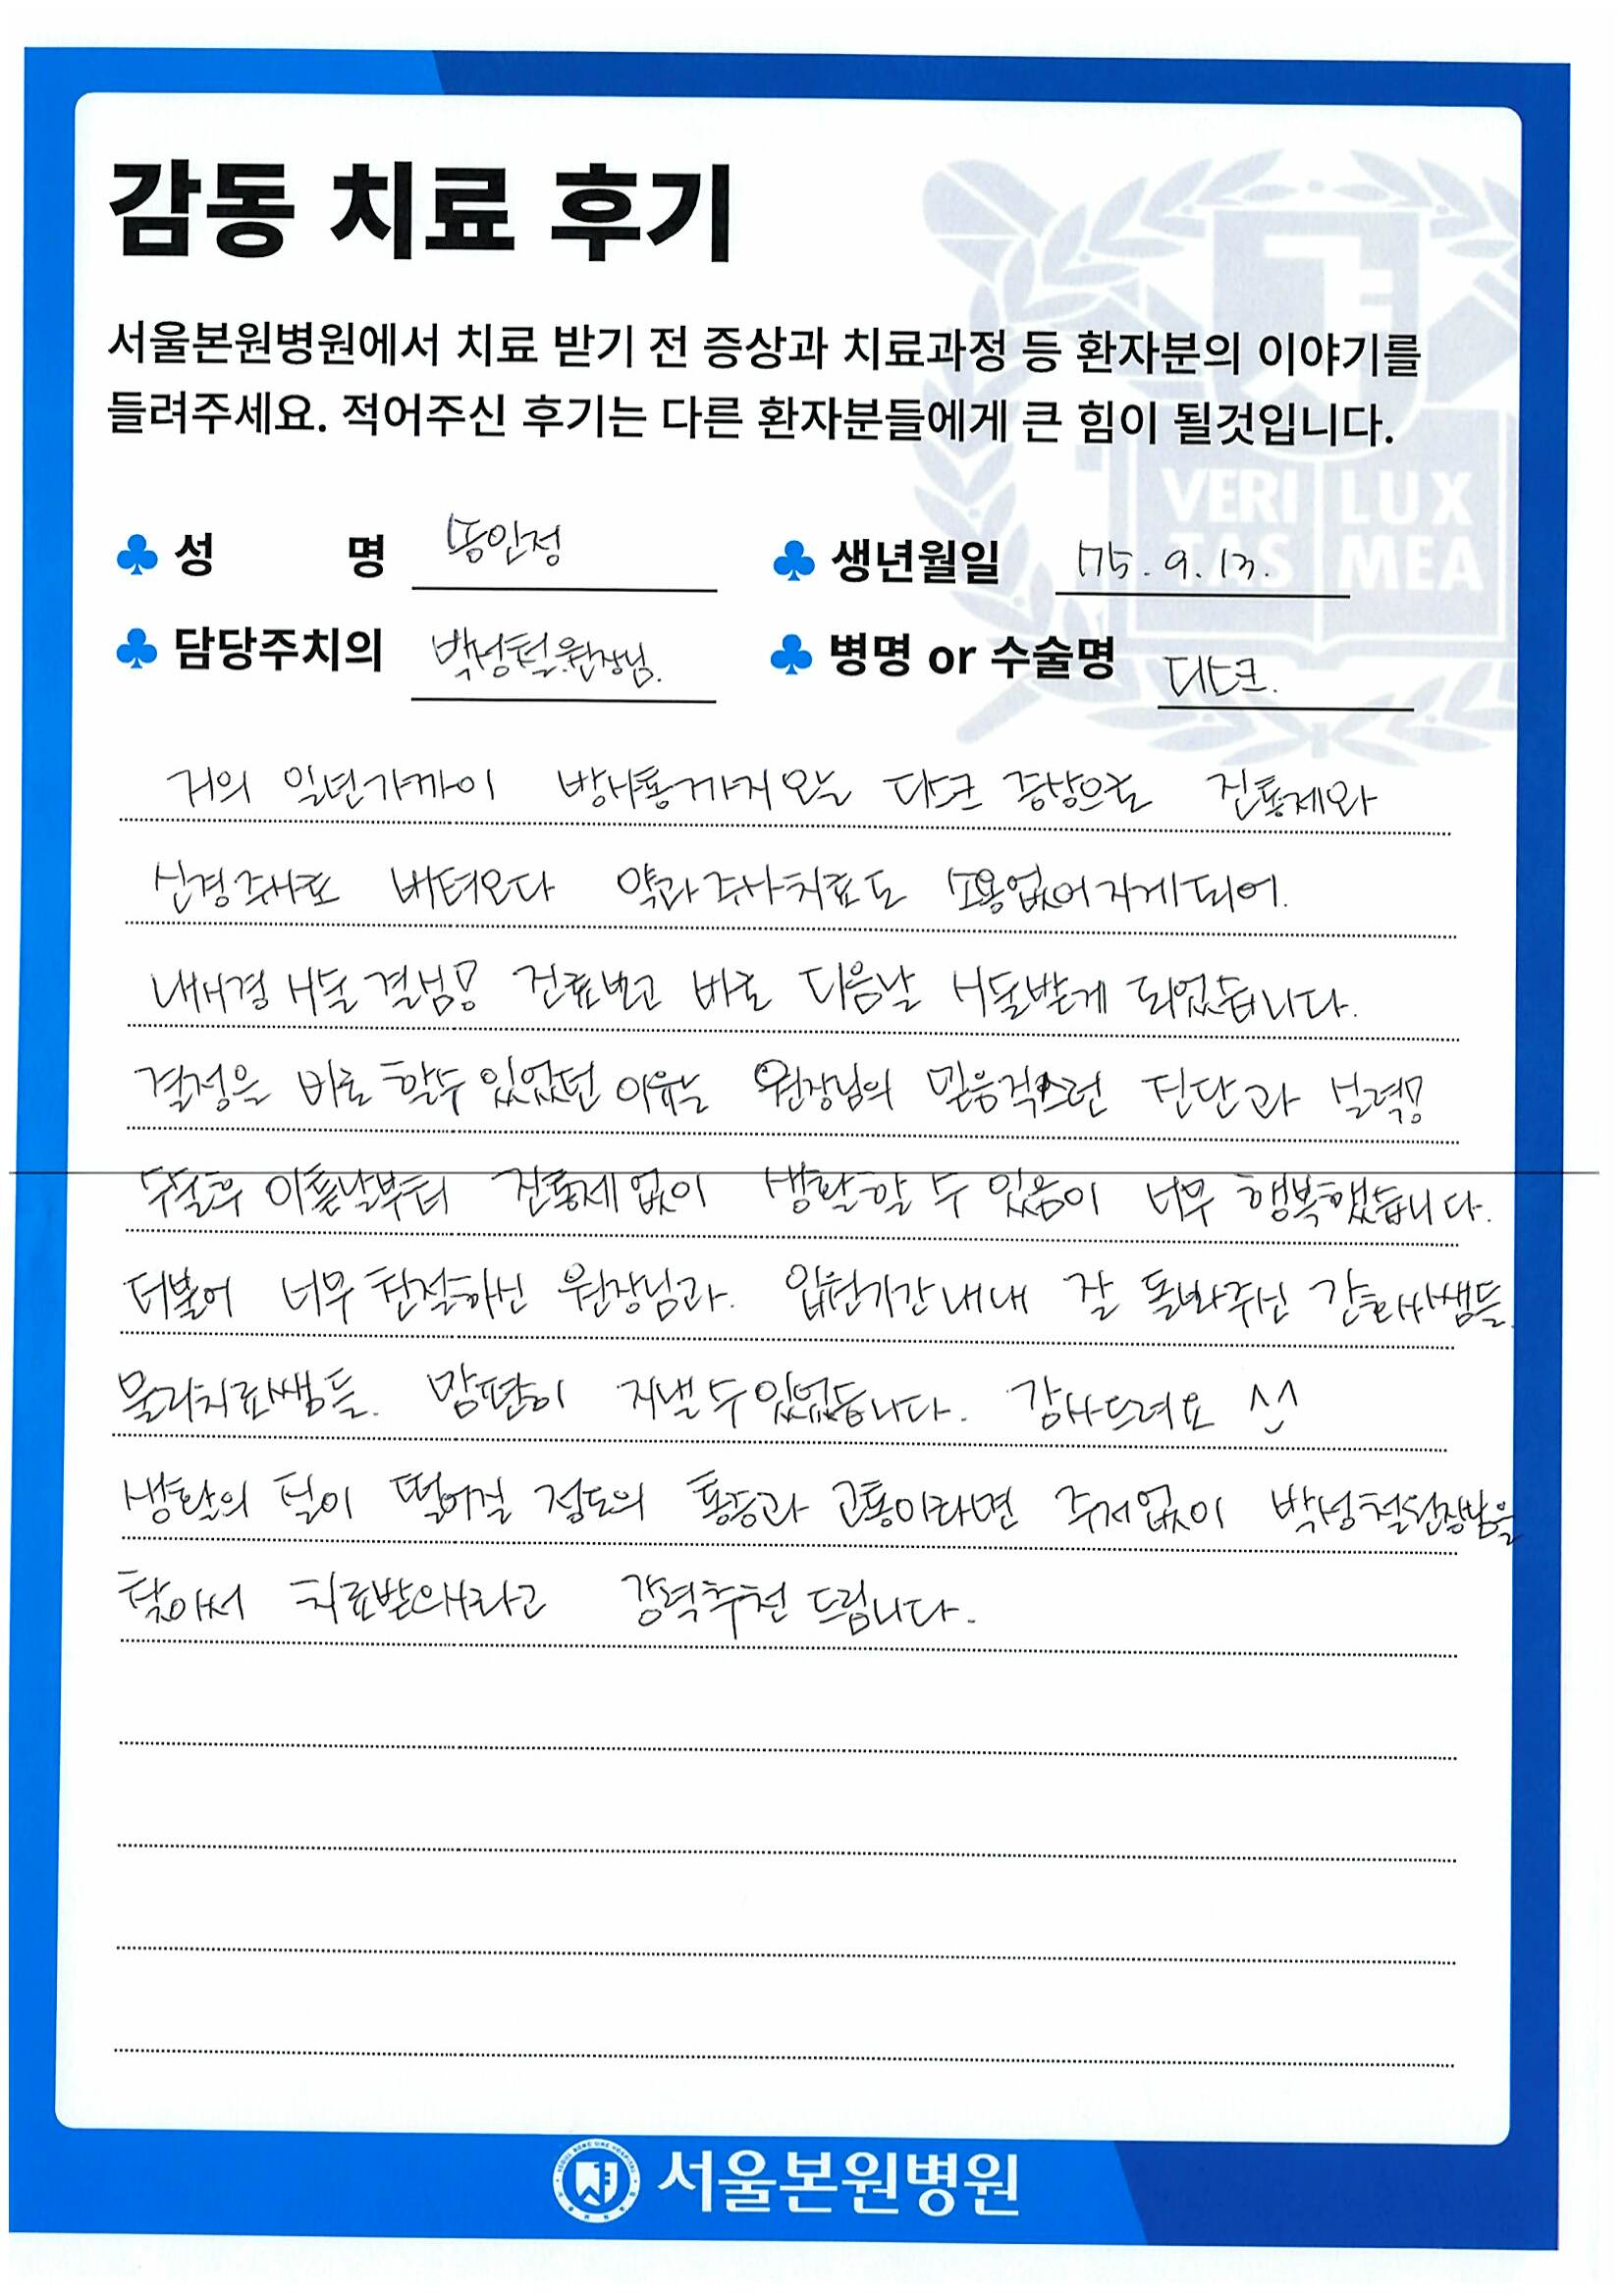 감동 치료 후기
서울본원병원에서 치료 받기 전 증상과 치료과정 등 환자분의 이야기를
들려주세요. 적어주신 후기는 다른 환자분들에게 큰 힘이 될것입니다.
VERI LUX
TAS MEA
성 명 생년월일 75. 9. 13.
담당주치의 박성철원장님. 병명 or 수술명 디스크.
거의 일년가까이 방사통까지 오는 디스크 증상으로 진통제와
신경주사로 버텨오다 약과 주사치료도 소용없어지게되어.
내시경 시술 결심! 진료보고 바로 다음날 시술받게 되었습니다.
결정을 바로 할수 있었던 이유는 원장님의 믿음직스런 진단과 실력!
수술후 이튿날부터 진통제없이 생활할 수 있음이 너무 행복했습니다.
더불어 너무 친절하신 원장님과. 입원기간내내 잘 돌봐주신 간호사쌤들.
물리치료쌤들. 맘편히 지낼수있었습니다. 감사드려요 ^^
생활의 질이 떨어질 정도의 통증과 고통이라면 주저없이 박성철원장님을
찾아서 치료받으시라고 강력추천 드립니다.
서울본원병원